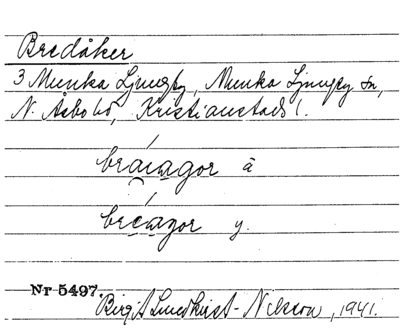 Bredåker
3 Munka Ljungby, Munka Ljungby sn,
N. Åsbo hd, Kristianstads l.
a
y.
Nr 5497.
Birgit Lundkvist-Nilsson, 1941.